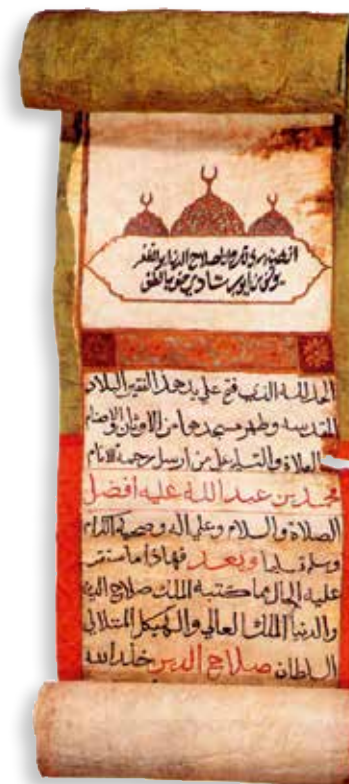 الحمد لله الذي فتح علي يد هذا الفقير البلاد
المقدسه وطهر مسجدها من الاوثان والاصنام
والصلاة والتسليم علي من ارسل رحمة للانام
محمد بن عبد الله عليه افضل
الصلاة والسلام وعلي اله وصحبه الكرام
وسلم تسليما وبعد فهاذا ما استقر
عليه الحال مما كتبه الملك صلاح الدين
والدنيا الملك العالي والهيكل المتلالي
السلطان صلاح الدين خلد الله